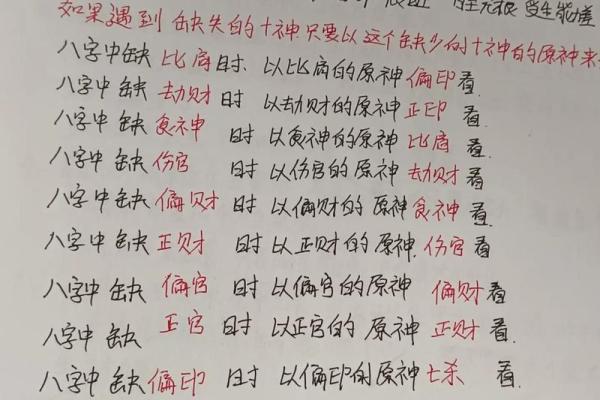 柱无根 受生能增
如果遇到缺失的十神.只要以这个缺少的十神的原神来
八字中缺比肩时.以比肩的原神偏印看.
八字中缺劫财时以劫财的原神正印看.
八字中缺食神时以食神的原神比肩看.
八字中缺伤官时以伤官的原神劫财看
八字中缺偏财时以偏财的原神食神看.
八字中缺正财时以正财的原神.伤官看
八字中缺偏官时以偏官的原神偏财看
八字中缺正官时以正官的原神正财看.
八字中缺偏印时以偏印的原神七杀看.